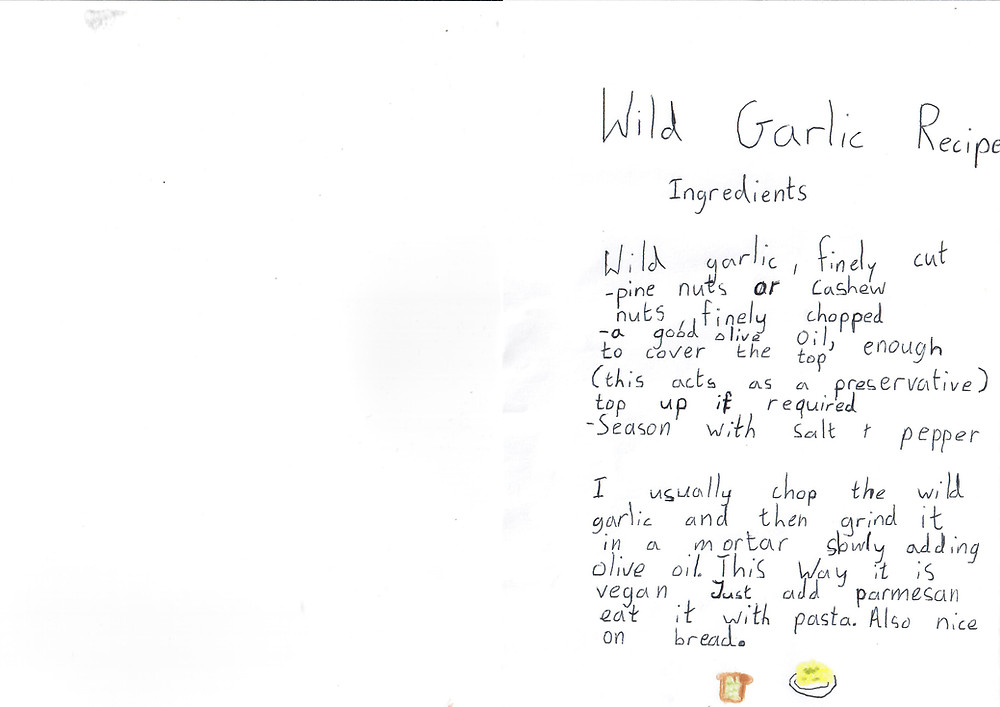 Wild Garlic Recipe
Ingredients
Wild garlic, finely cut
-pine nuts or cashew
nuts, finely chopped
-a good olive oil,
to cover the top enough
(this acts as a preservative)
top up if required
-Season with salt + pepper
I usually chop the wild
garlic and then grind it
in a mortar slowly adding
olive oil. This way it is
vegan Just add parmesan
eat it with pasta. Also nice
on bread.